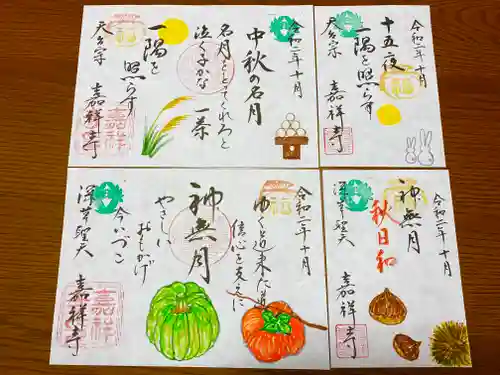 令和二年十月
中秋の名月
名月をとってくれろと
泣く子かな
一茶
一隅を
照らす
天台宗
嘉祥寺
嘉祥
令和二年十月
十五夜
一隅を照らす
天台宗
嘉祥寺
令和二年十月
信心を
神無月
やさしい
おもかげ
今いづこ
深草聖天
嘉祥寺
嘉祥
令和二年十月
神無月
秋日和
深草聖天
嘉祥寺